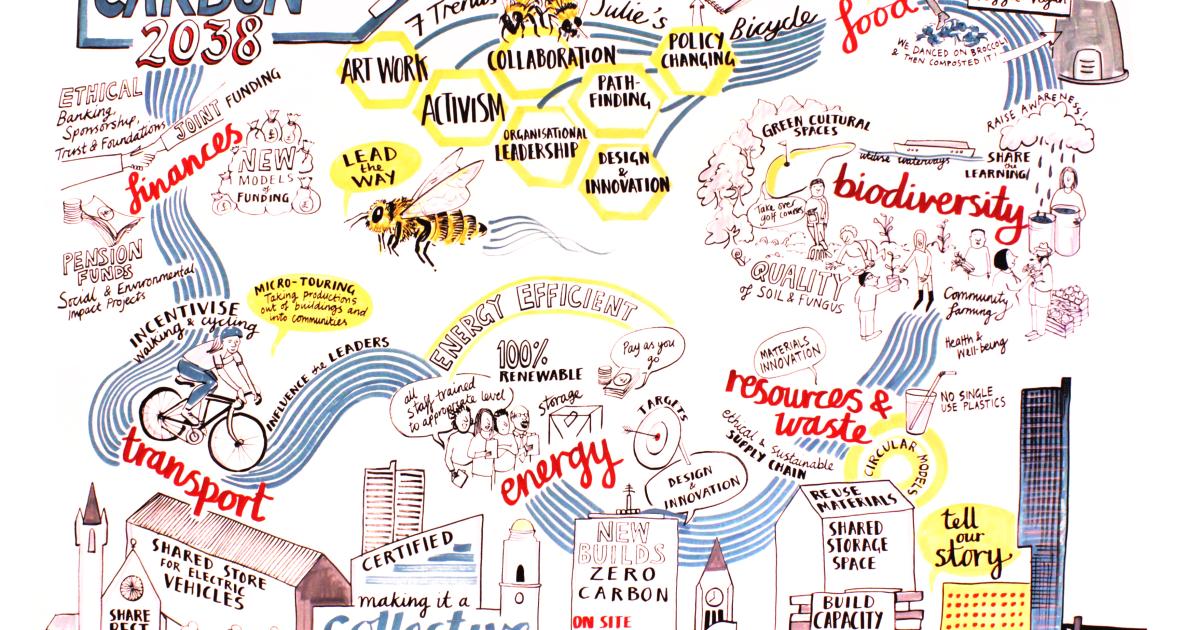 CARBON
2038
7 Trends
Julie's
Bicycle
food
WE DANCED ON BROCCOLI
& THEN COMPOSTED IT!
ART WORK
COLLABORATION
POLICY
CHANGING
ACTIVISM
PATH-
FINDING
ORGANISATIONAL
LEADERSHIP
DESIGN
&
INNOVATION
LEAD
the
WAY
ETHICAL
Banking,
Sponsorship,
Trust & Foundations
JOINT FUNDING
finances
NEW
MODELS
of
FUNDING
PENSION
FUNDS
Social & Environmental
Impact Projects
GREEN CULTURAL
SPACES
utilise waterways
RAISE AWARENESS!
SHARE
the
LEARNING!
biodiversity
Take over
golf courses
QUALITY
of SOIL & FUNGUS
Community
farming
Health &
Well-being
INCENTIVISE
Walking & cycling
MICRO-TOURING
Taking productions
out of buildings and
into communities
INFLUENCE the LEADERS
transport
ENERGY EFFICIENT
100%
RENEWABLE
Pay as you
go
all staff trained
to appropriate level
storage
TARGETS
energy
DESIGN
&
INNOVATION
MATERIALS
INNOVATION
resources &
waste
NO SINGLE
USE PLASTICS
ethical & sustainable
SUPPLY CHAIN
CIRCULAR MODELS
SHARED STORE
FOR ELECTRIC
VEHICLES
SHARE
CERTIFIED
making it a
Collective
NEW
BUILDS
ZERO
CARBON
ON SITE
RE USE
MATERIALS
SHARED
STORAGE
SPACE
BUILD
CAPACITY
tell
our
story